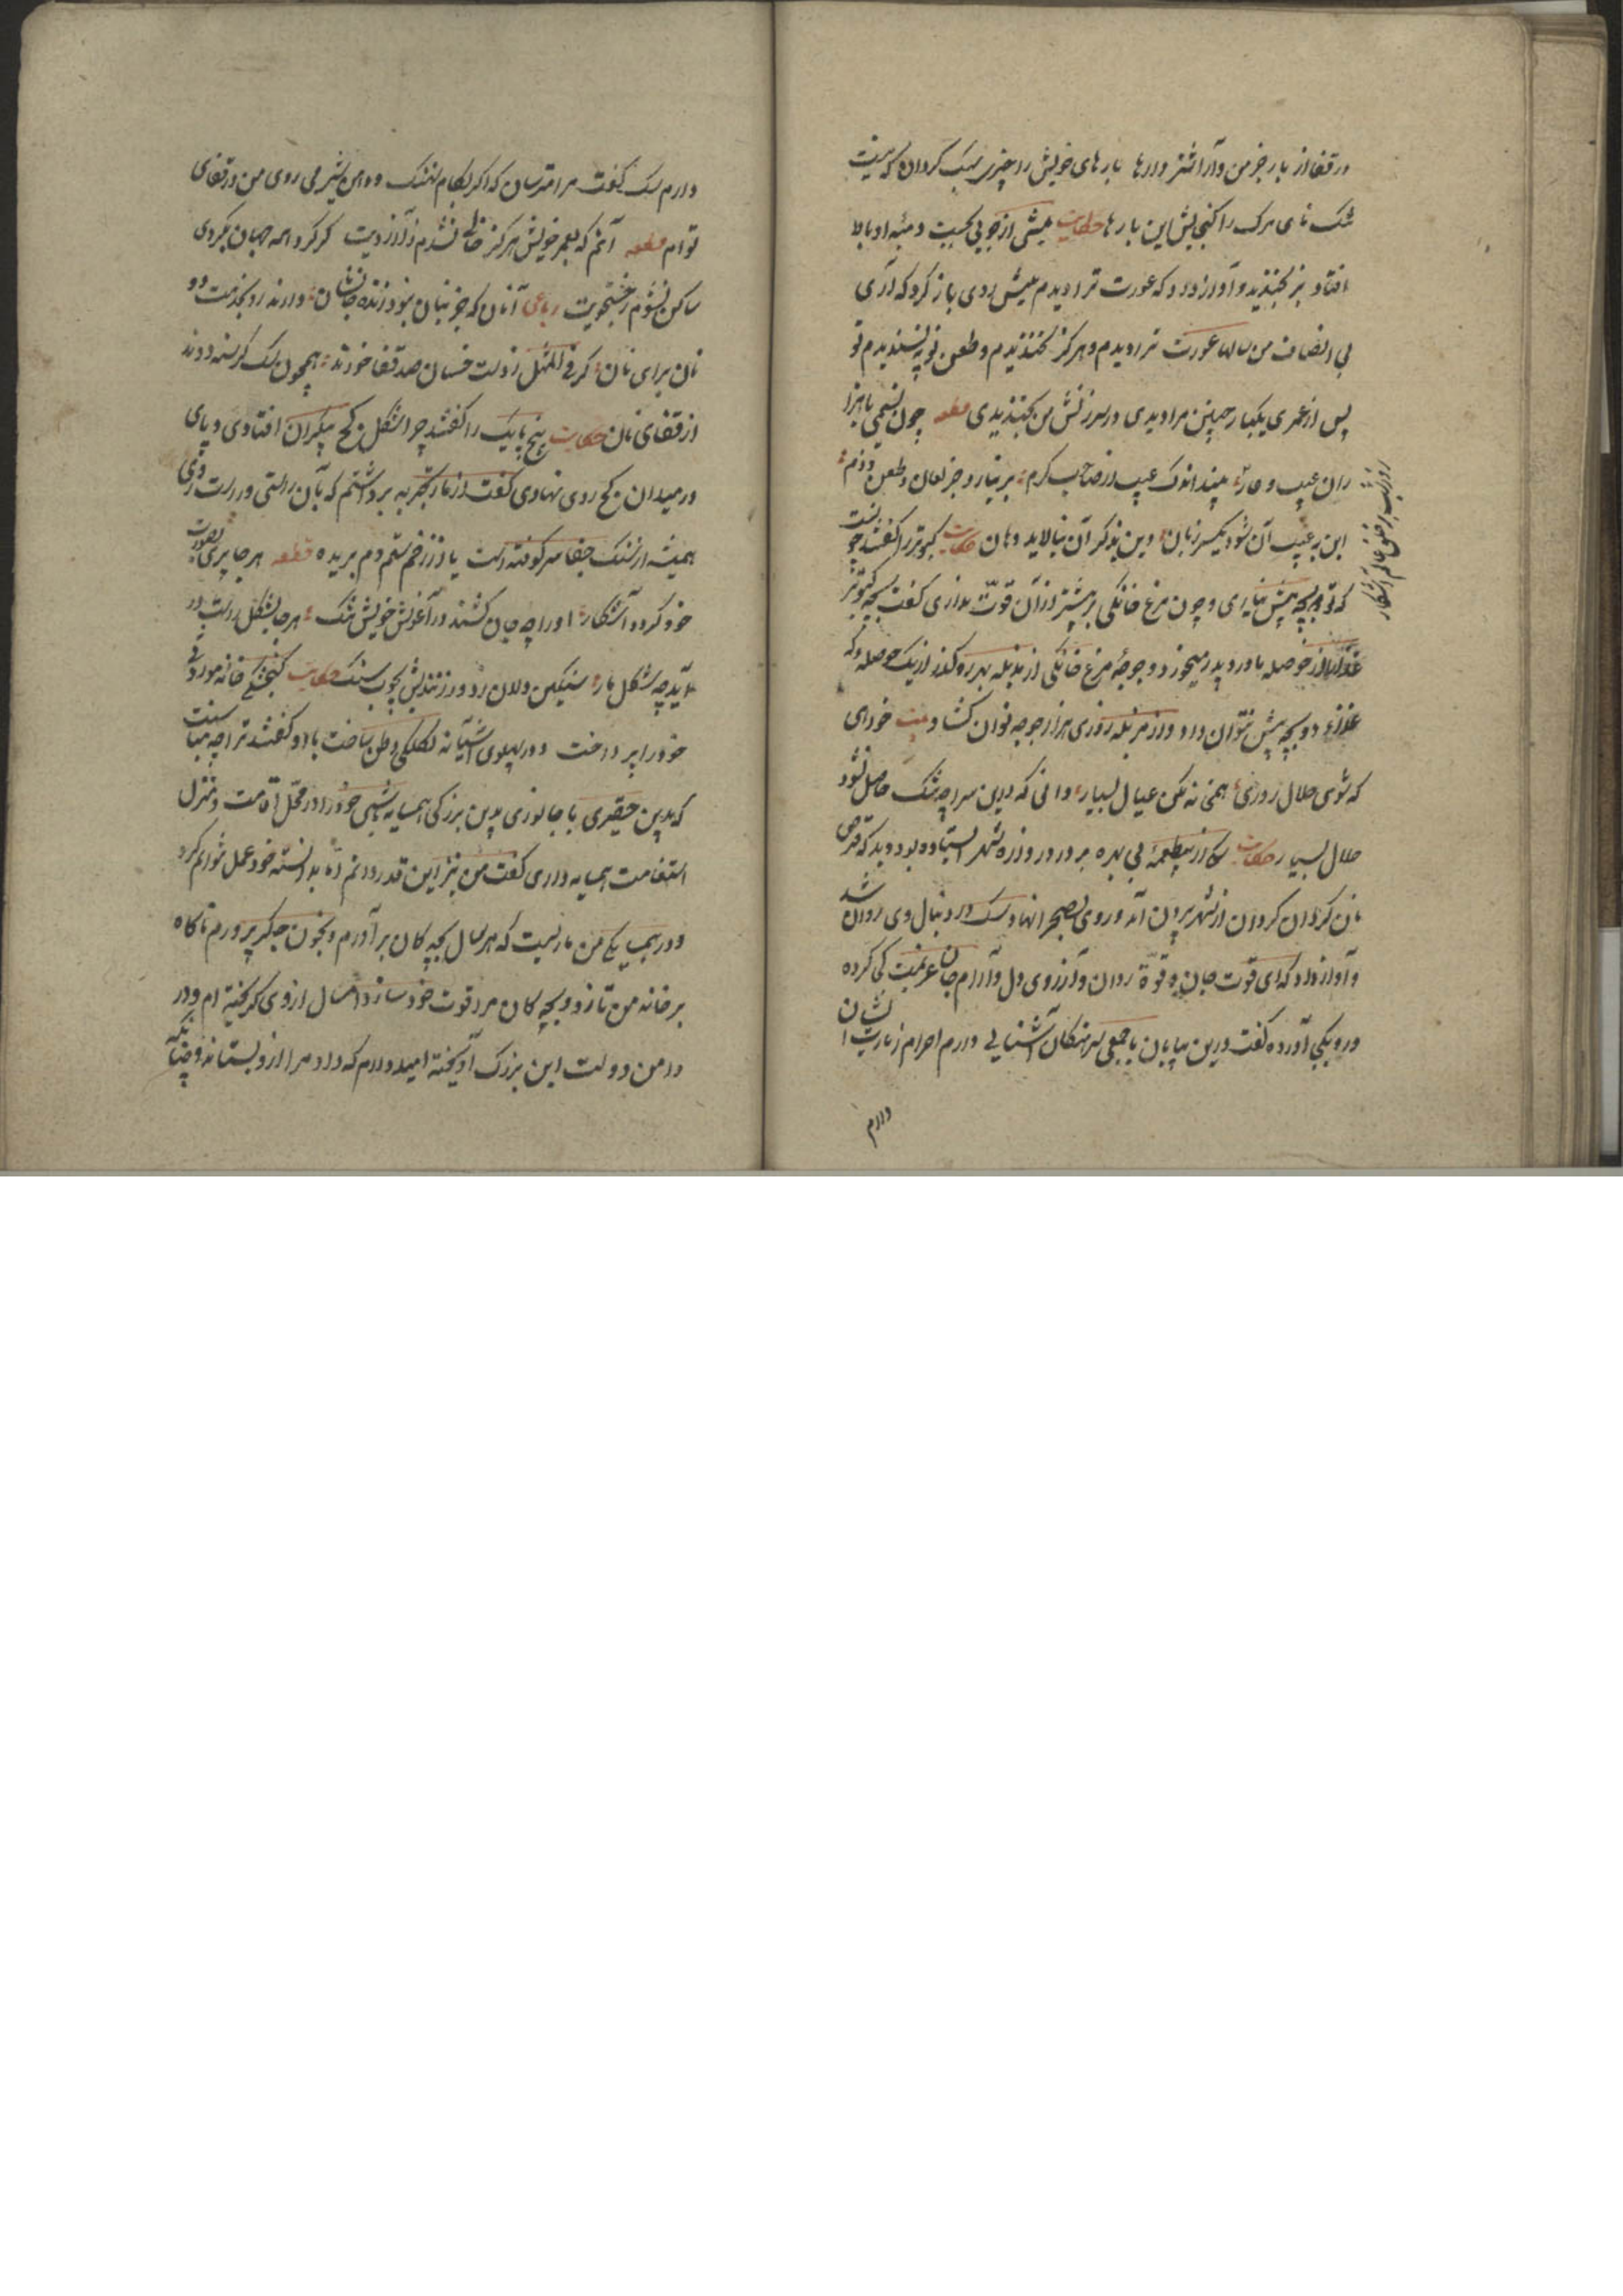 در قفا از بار خر من وا را اشتر وارها بارهای خویش را چیزی سبک گردان که نیست
تنک نای مرک را گنجایش این بارها حکایت میشی از جویی بجست دنبه او بالا
افتاد بز بخندید و آواز داد که عورت ترا دیدم میش روی باز کرد که ای
بی انصاف من سالها عورت ترا دیدم و هرگز نخندیدم و طعن تو نپسندیدم تو
پس از عمری یکبار چنین مرا دیدی در سرزنش من بخندیدی قطعه چون لئیمی با هزا
ران عیب و عار بیند اندک عیب از صاحب کرم بر نیارد جز لعان و طعن و ذم
این به عیب آن شود یکسر زبان وین بذکر آن نیالاید دهان حکایت کبوتر را گفتند چونست
که تو دو بچه بیش نیاری و چون مرغ خانگی بر بیشتر از آن قوت نداری گفت بچه کبوتر
غذا از حوصله مادر و پدر میخورد و جوجه مرغ خانگی از مزبله بهر رهگذر از یک حوصله که
غذای دو بچه بیش نتوان داد و از مزبله روزی هزار جوجه توان گشاد بیت خواهی
که شوی حلال روزی همخانه مکن عیال بسیار دانی که درین سراچه تنگ حاصل نشود
حلال بسیار حکایت سگ از بی طعمه بی بهره بر در دروازه شهر ایستاده بود دید که قرص
نان گردان گردان از شهر بیرون آمد و روی بصحرا نهاد سگ در دنبال وی روان شد
و آواز داد که ای قوت جان و قوة روان و آرزوی دل و آرام جان عزیمت کجا کرده
و رو بکی آورده گفت درین بیابان با جمعی سرهنگان آشنایی دارم احرام زیارت ایشان
دارم
دارم سگ گفت مرا مترسان که اگر بکام نهنگ و دهان شیر می روی من در قفای
توام قطعه آنم که بعمر خویش هرگز خالی نشدم ز آرزویت گر گرد همه جهان بگردی
ساکن نشوم ز جستجویت رباعی آنان که جز بنان نبود زنده جانشان دارند رو بخدمت دو
نان برای نان گر فی المثل ز دست خسان صد قفا خورند همچون سگ گرسنه دوند
از قفای نان حکایت پنج پایک را گفتند چرا شکل کج پیکران افتادی و پای
در میدان کج روی نهادی گفت از مار تجربه برداشتم که بآن راستی و راست روی
همیشه از سنگ جفا سر کوفته است یا از زخم ستم دم بریده قطعه هر جا پری بصورت
خود گردد آشکار او را چو جان کشند در آغوش خویش تنگ هر جا بشکل راست در
آید چو شکل مار سنگین دلان زدور زنندش بچوب سنگ حکایت گنجشکی خانه موروثی
خود را بپرداخت و در پهلوی آشیانه لکلکی وطن ساخت با او گفتند ترا چه مناسبت
که بدین حقیری با جانوری بدین بزرگی همسایه باشی و خود را در محل اقامت و منزل
استقامت همسایه داری گفت من نیز این قدر دانم اما بدانسته خود عمل نتوانم کرد
و در همسایگی من ماریست که هر سال بچه گان بر آورم و بخون جگر پرورم ناگاه
بر خانه من تازد و بچه گان مرا قوت خود سازد امسال ازوی گریخته ام و در
دامن دولت این بزرگ آویخته امید دارم که داد مرا ازو بستاند و چنانکه